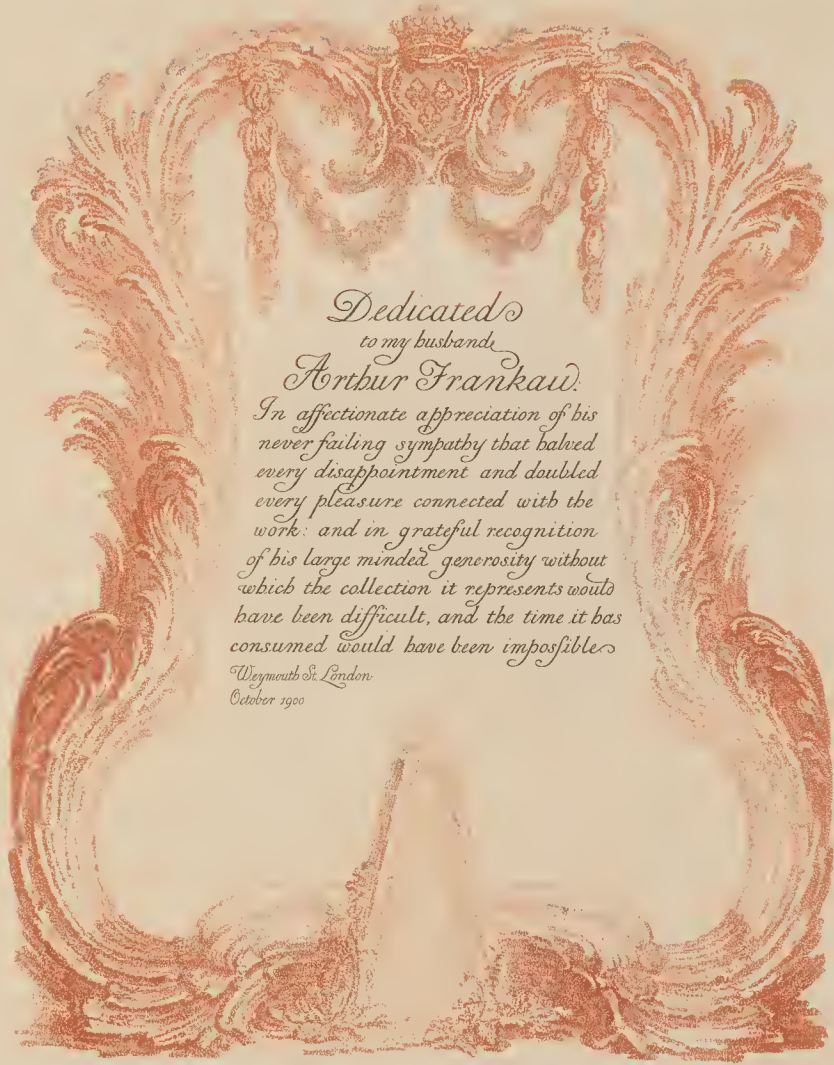 Dedicated
to my husband
Arthur Frankau:
In affectionate appreciation of his
never failing sympathy that halved
every disappointment and doubled
every pleasure connected with the
work: and in grateful recognition
of his large minded generosity without
which the collection it represents would
have been difficult, and the time it has
consumed would have been impoſsible
Weymouth St. London
October 1900